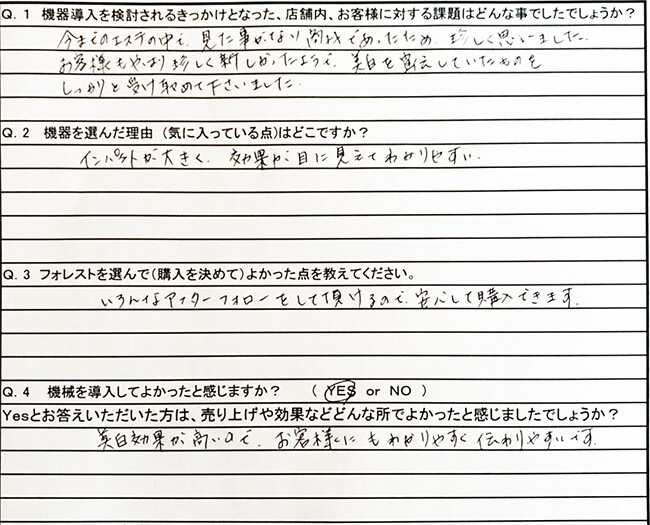 Q. 1 機器導入を検討されるきっかけとなった、店舗内、お客様に対する課題はどんな事でしたでしょうか?
今までのエステの中で、見た事がない商材であったため、珍しく思いました。
お客様もやはり珍しく新しかったようで、美白を宣伝していたものを
しっかりと受け取めて下さいました。
Q. 2 機器を選んだ理由 (気に入っている点)はどこですか?
インパクトが大きく、効果が目に見えてわかりやすい.
Q. 3 フォレストを選んで(購入を決めて)よかった点を教えてください。
いろんなアフターフォローをして頂けるので、安心して購入できます.
Q. 4 機械を導入してよかったと感じますか? ( YES or NO )
Yesとお答えいただいた方は、売り上げや効果などどんな所でよかったと感じましたでしょうか?
美白効果が高いので、お客様にもわかりやすく伝わりやすいです.